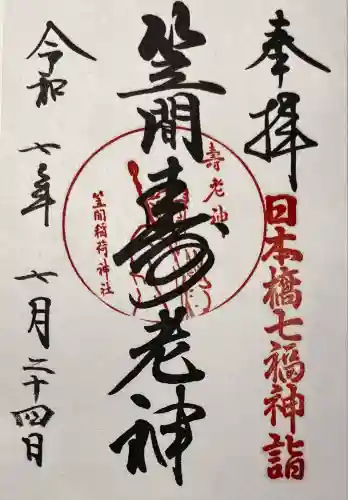 奉拝
日本橋七福神詣
笠間寿老神
壽老神
笠間稲荷神社
令和七年七月二十四日